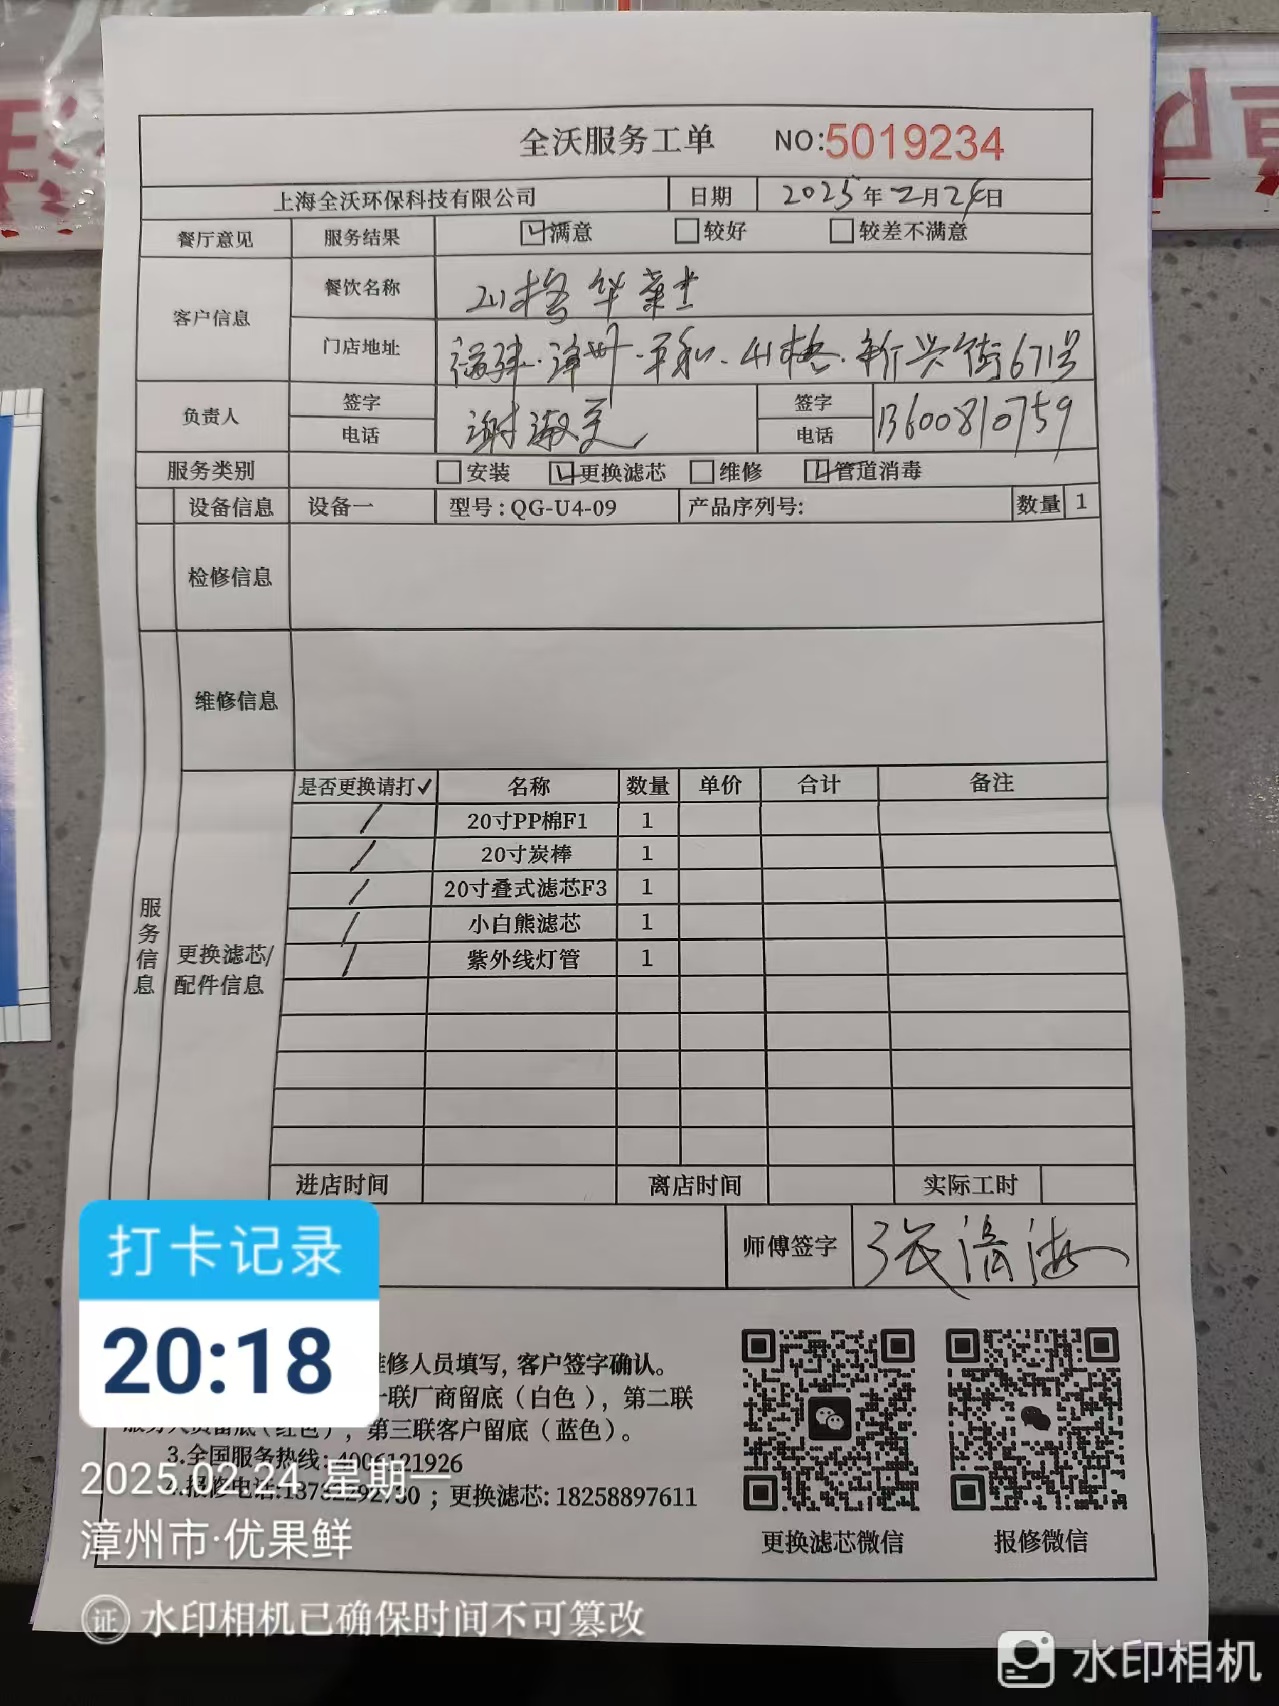 全沃服务工单 NO:5019234
上海全沃环保科技有限公司 日期 2025年2月24日
餐厅意见 服务结果 满意 较好 较差不满意
客户信息 餐饮名称 山格华莱士
门店地址 福建·漳州·平和·山格·新兴街671号
负责人 签字 电话 谢淑 签字 电话 13600810759
服务类别 安装 更换滤芯 维修 管道消毒
设备信息 设备一 型号:QG-U4-09 产品序列号: 数量 1
检修信息
维修信息
服务信息
更换滤芯/配件信息
是否更换请打✓ 名称 数量 单价 合计 备注
/ 20寸PP棉F1 1
/ 20寸炭棒 1
/ 20寸叠式滤芯F3 1
/ 小白熊滤芯 1
/ 紫外线灯管 1
进店时间 离店时间 实际工时
师傅签字 张清海
维修人员填写, 客户签字确认。
一联厂商留底（白色）, 第二联
服务人员留底（红色）, 第三联客户留底（蓝色）。
3.全国服务热线: 4006121926
报修电话: ; 更换滤芯: 18258897611
更换滤芯微信 报修微信
打卡记录
20:18
2025.02.24 星期一
漳州市·优果鲜
证 水印相机已确保时间不可篡改
水印相机